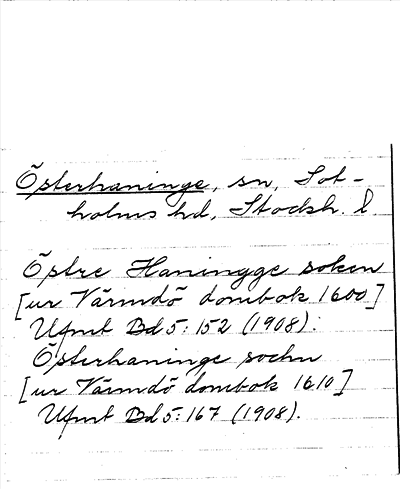 Österhaninge, sn, Sot-
holms hd, Stockh. l
Östre Haningge soken
[ur Värmdö dombok 1600]
Ufmt Bd 5: 152 (1908).
Österhaninge sochn
[ur Värmdö dombok 1610]
Ufmt Bd 5: 167 (1908).